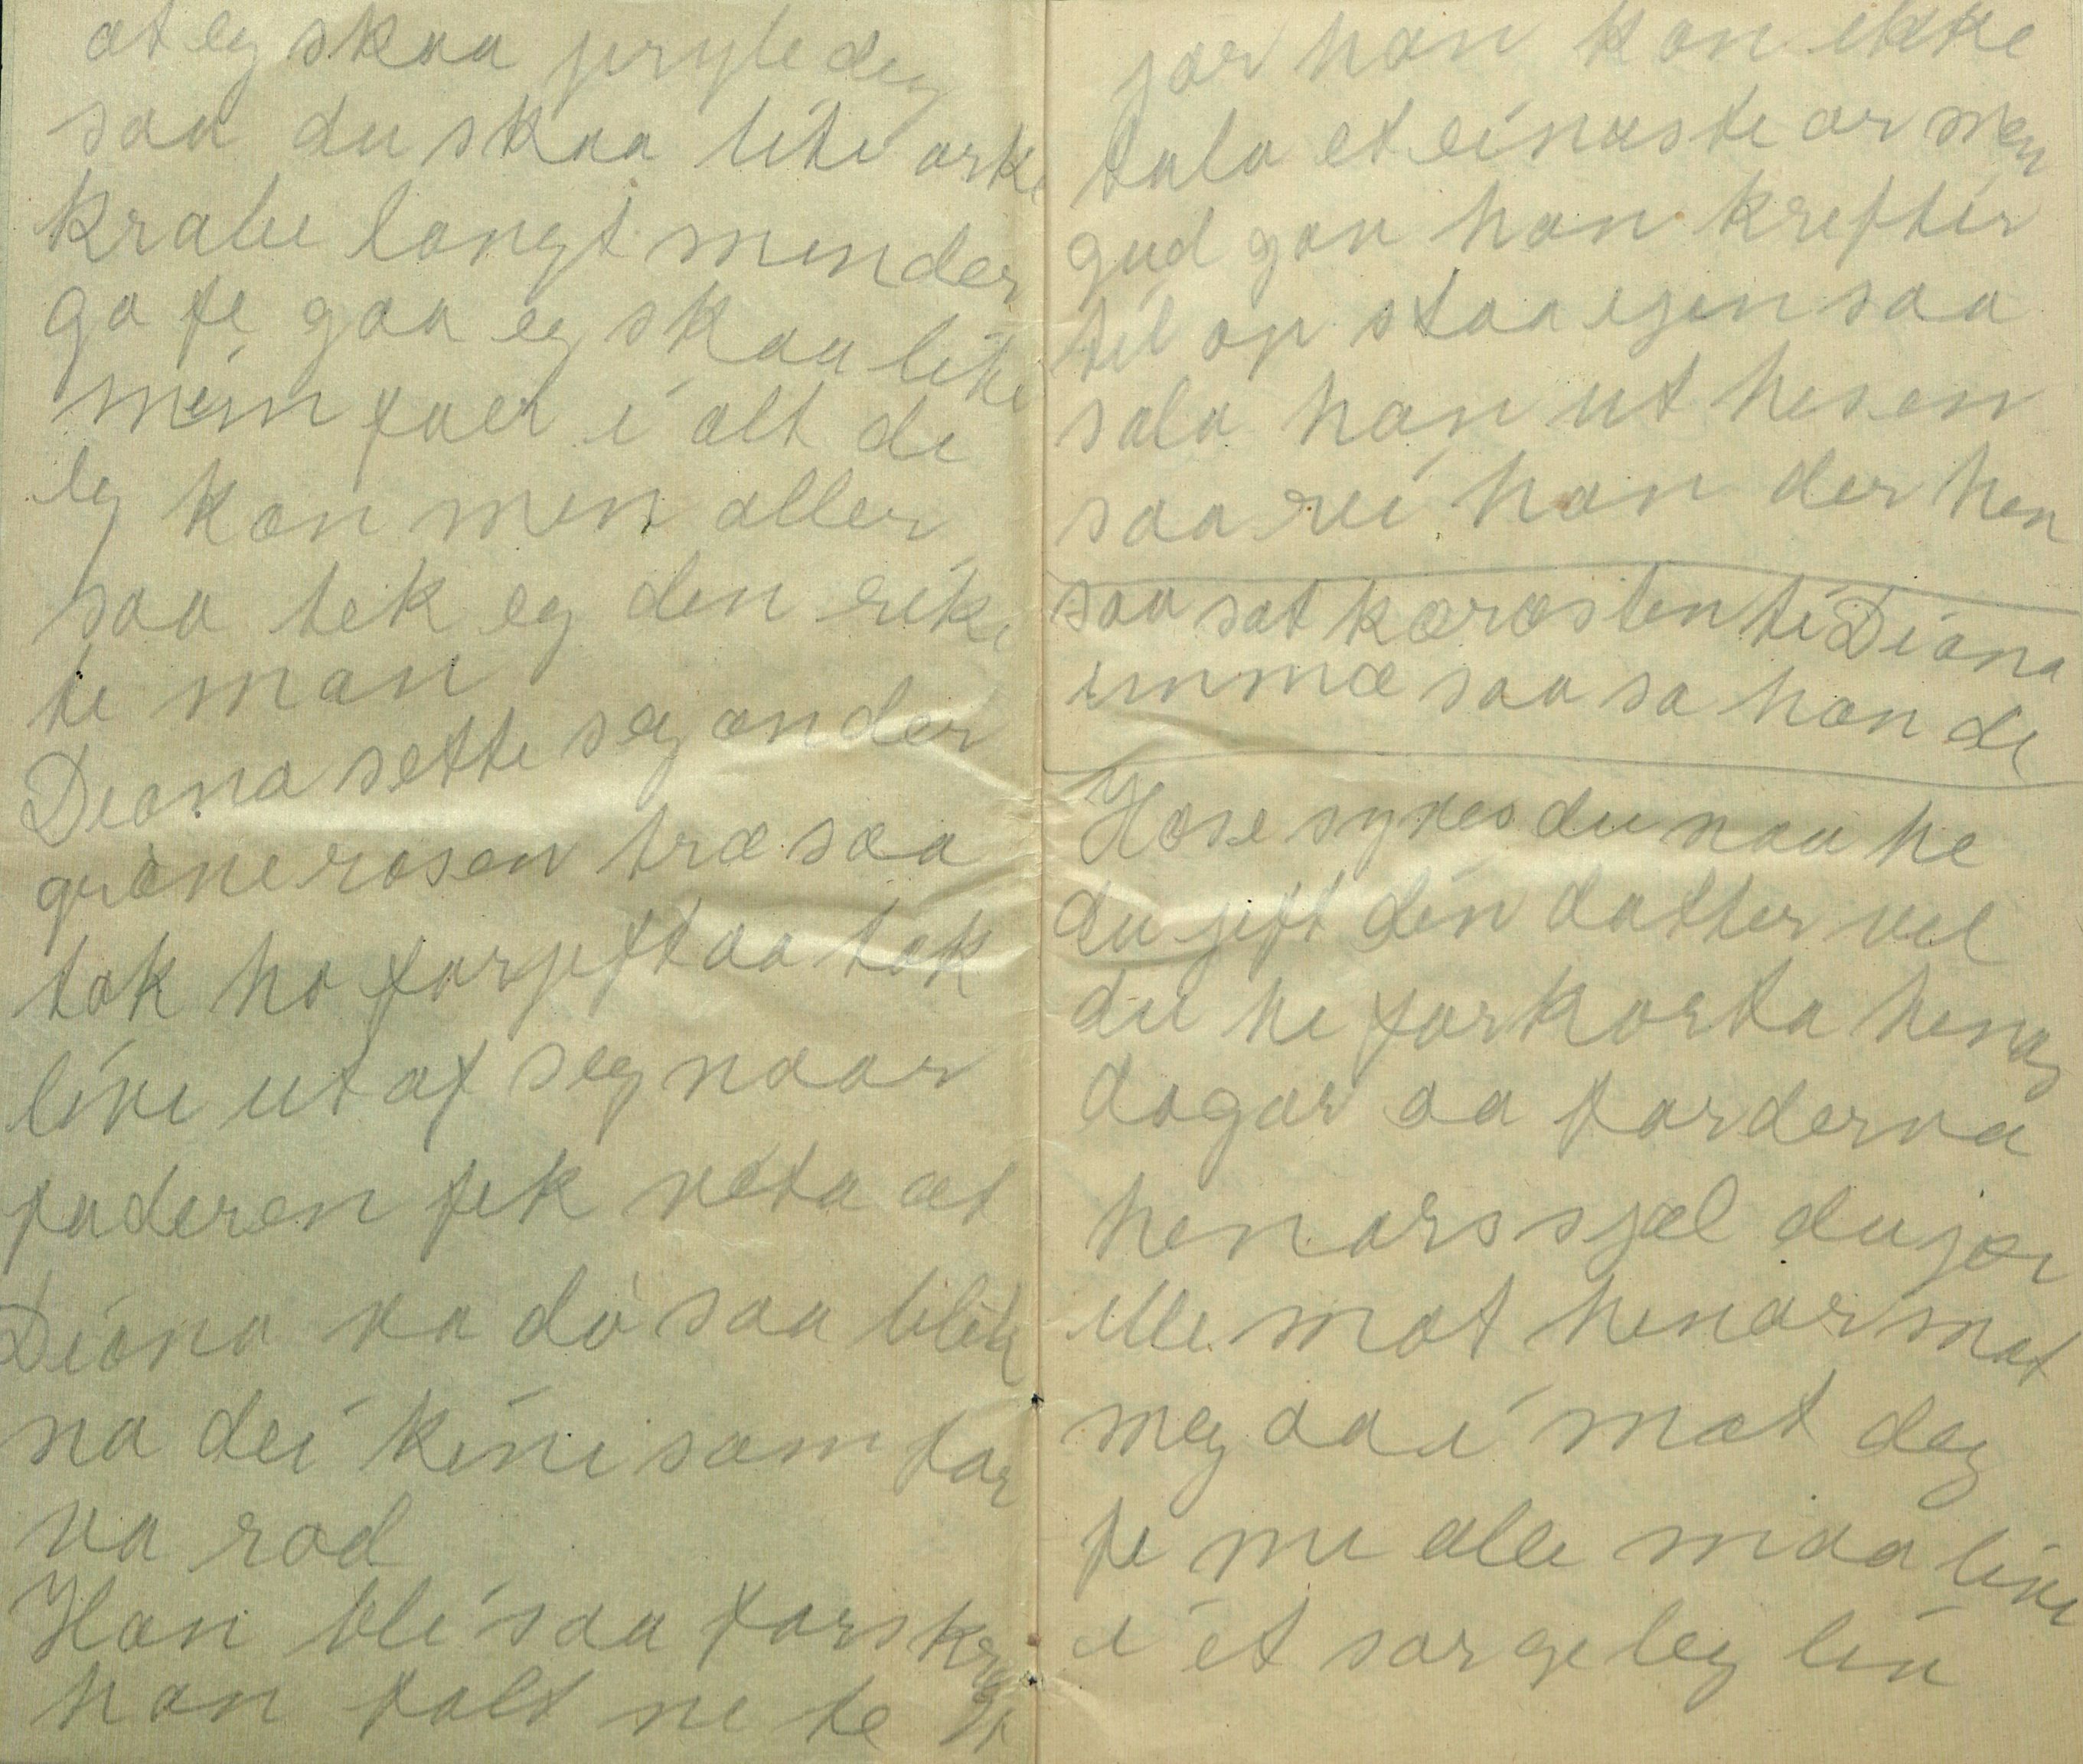 at eg skaa pryle deg
saa du skaa lite orke
krabe langt minder
ga fe gaa eg skaa like
min faer i alt de
eg kan men aller
saa tek eg den rike
te man
Diana sette seg onder
grøne rosen træ saa
tok ho forjift aa tok
live ut af seg naar
faderen fek veta at
Diana va dø saa blik
na dei kini som før
va rød
Han blei saa forskræ
han falt ne te
jor han kan ikke
tala et einaste or men
gud gav han krefter
til op staa igen saa
sala han ut hesen
saa rei han der hen
saa sat kæræsten ti Diana
inmæ saa sa han de
Høse synes du naa he
du jift din datter vel
du he forkorta henas
dagar aa forderva
henars sjæl du jør
ille mot henar mot
meg aa i mot deg
fe me alle maa live
i et sørgeleg liv